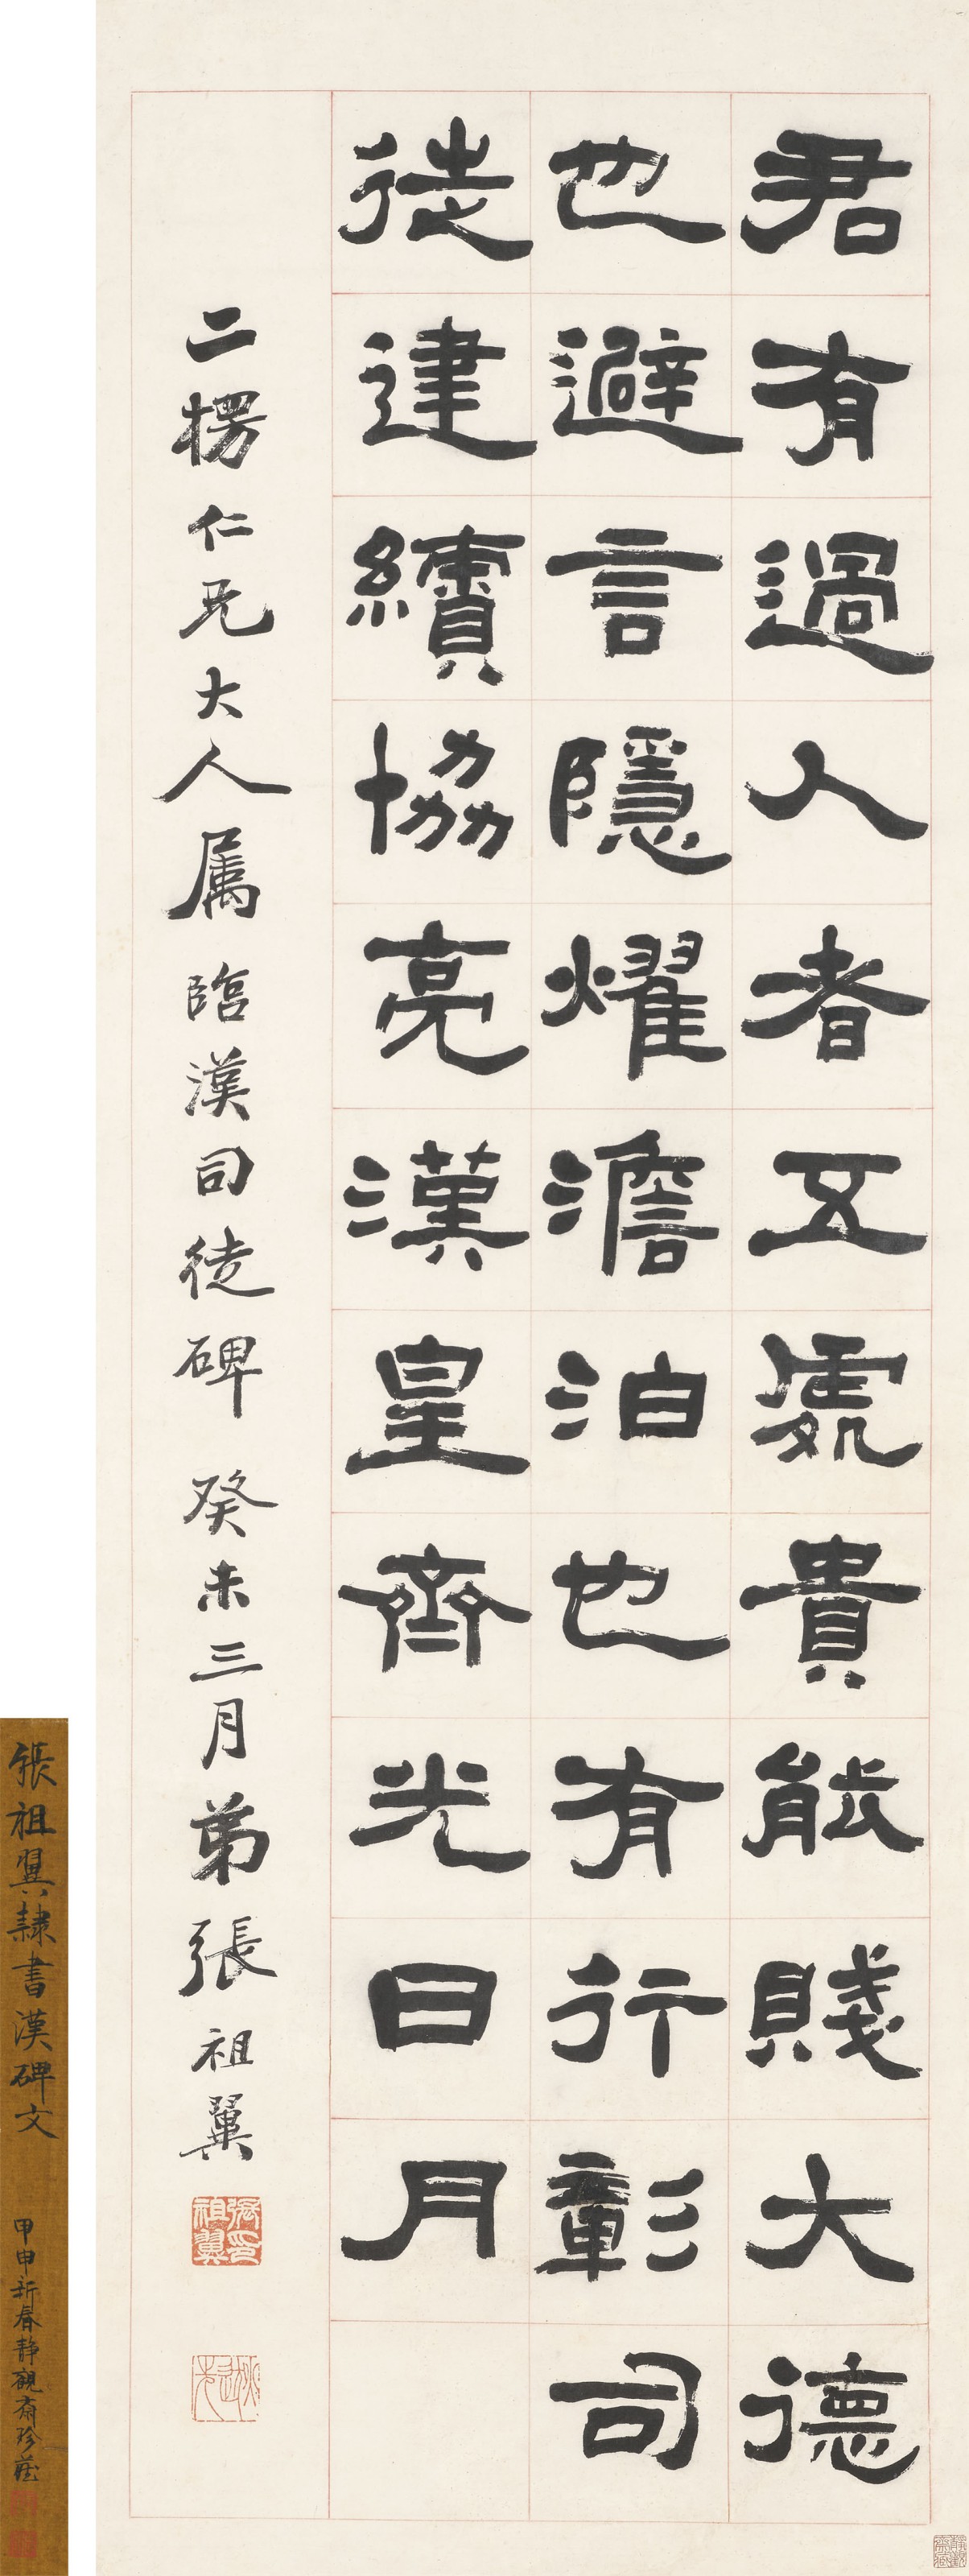 君有過人者五處貴能賤大德
也避言隱燿澹泊也有行彰司
徒建續協亮漢皇齊光日月
二楞仁兄大人属 臨漢司徒碑 癸未三月弟張祖翼
張祖翼隸書漢碑文 甲申新春静觀齋珍藏